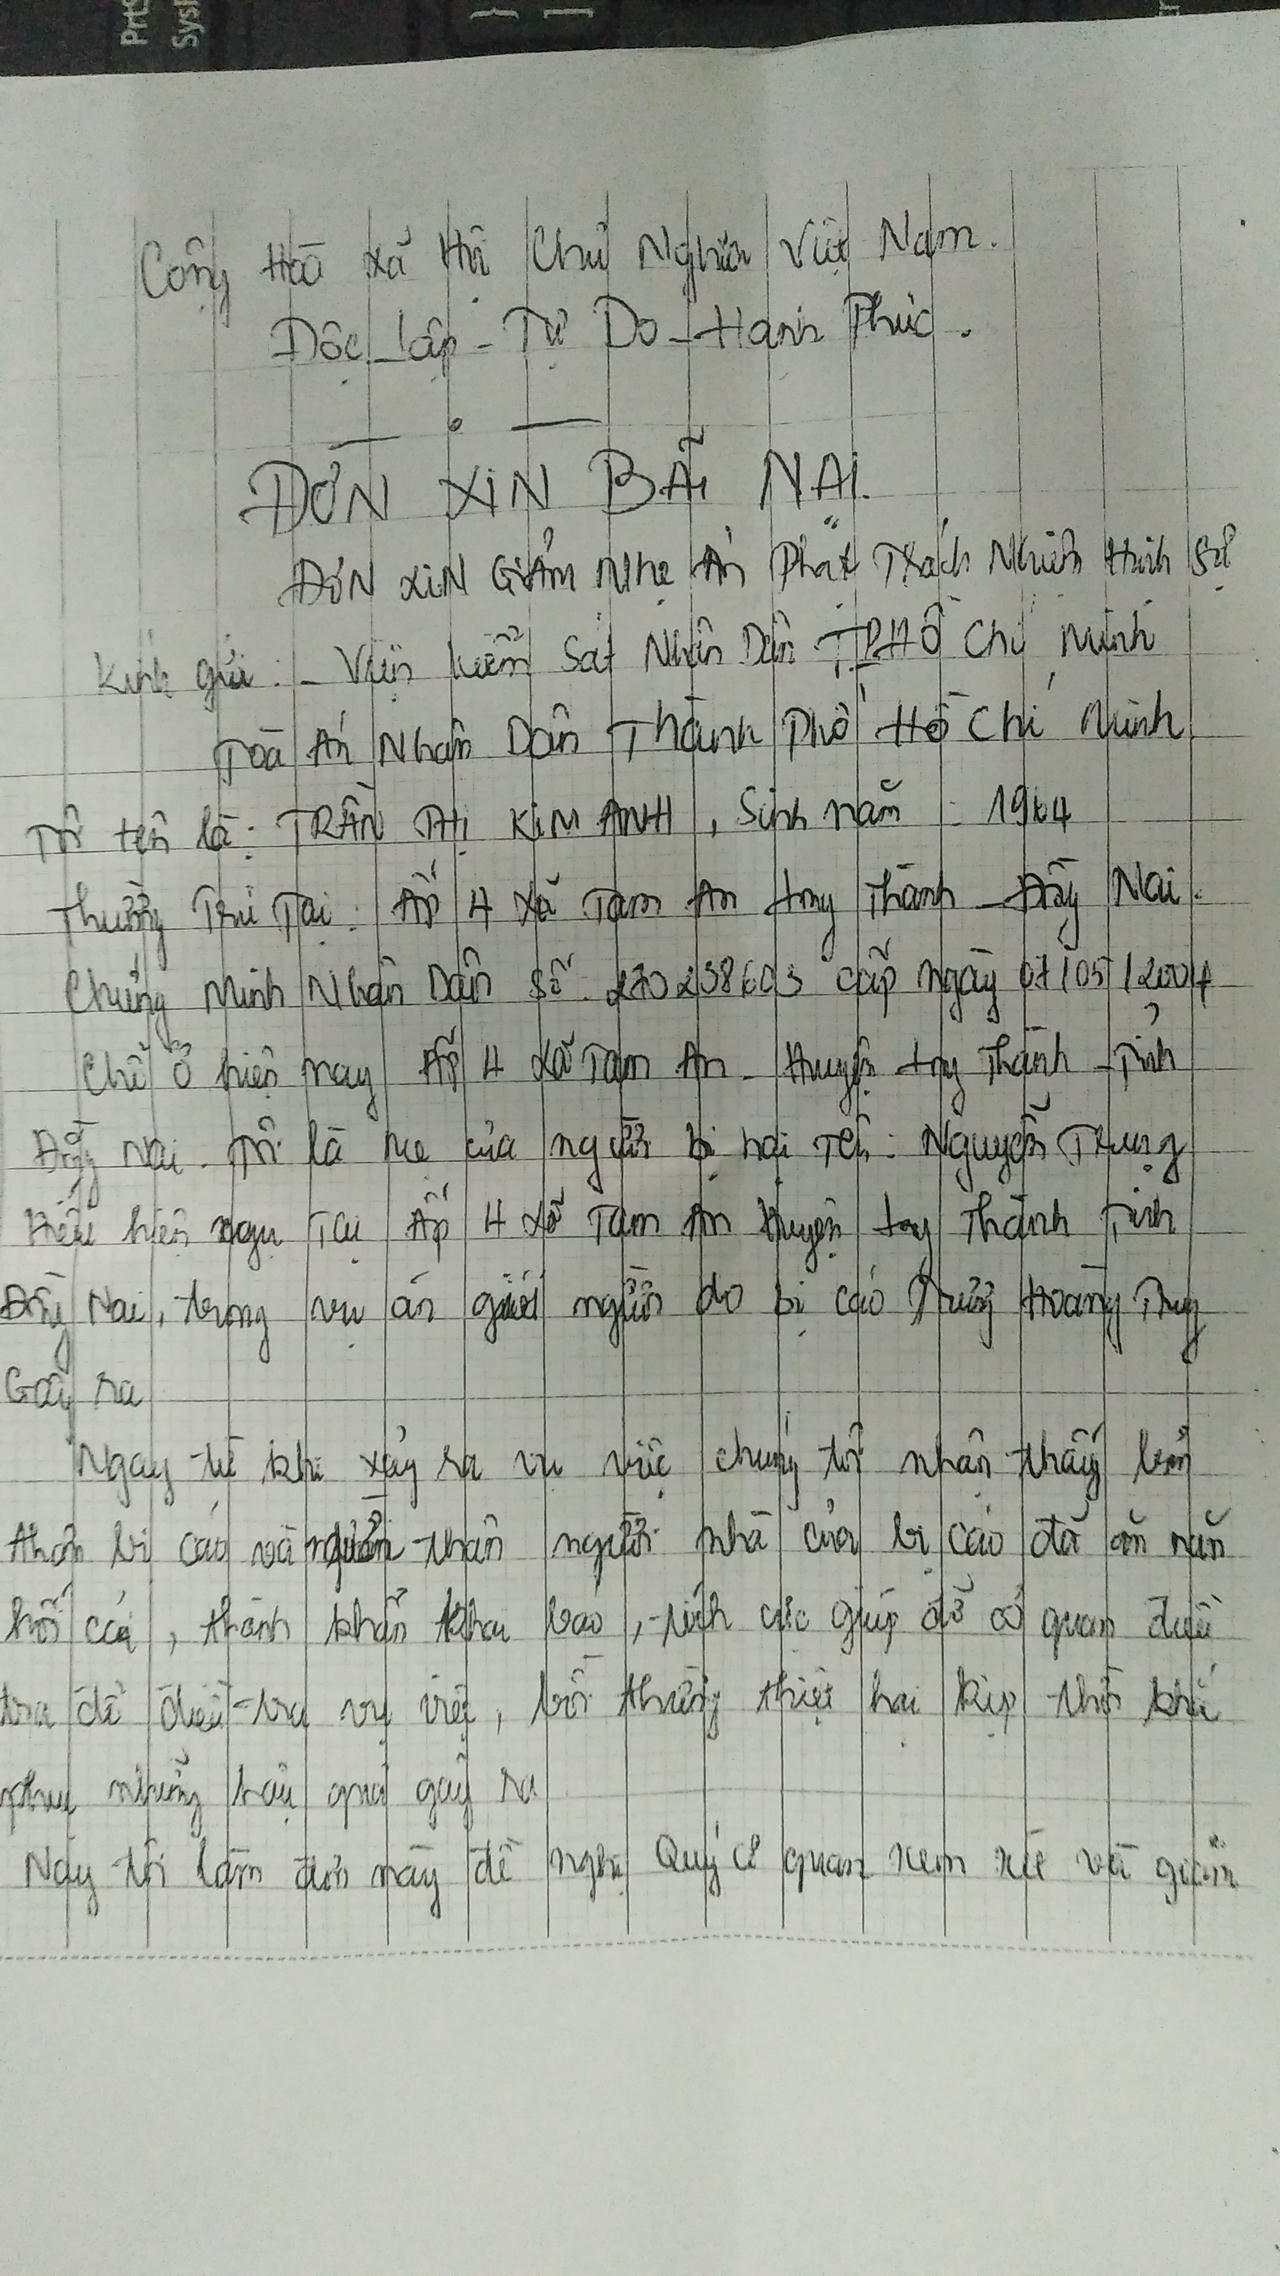 PrtS
Sysl
}
]
Cộng Hoà Xã Hội Chủ Nghĩa Việt Nam.
Độc lập - Tự Do - Hạnh Phúc.
ĐƠN XIN BÃI NẠI.
ĐƠN XIN GIẢM Nhẹ Án Phạt Trách Nhiệm Hình Sự
Kính gửi: - Viện kiểm Sát Nhân Dân TPHỒ Chí Minh
Toà Án Nhân Dân Thành Phố Hồ Chí Minh
Tôi tên là: TRẦN Thị KIM ANH, Sinh năm: 1964
Thường Trú Tại: Ấp 4 Xã Tam An Long Thành - Đồng Nai.
Chứng Minh Nhân Dân Số: 270238603 cấp ngày 07/05/2004
Chỗ ở hiện nay Ấp 4 Xã Tam An - Huyện Long Thành - Tỉnh
Đồng Nai. Tôi là mẹ của người bị hại Tên: Nguyễn Trung
Hiếu hiện ngụ Tại Ấp 4 Xã Tam An Huyện Long Thành Tỉnh
Đồng Nai, trong vụ án giết người do bị cáo Trương Hoàng
Gây ra
Ngay từ khi xảy ra vụ việc chúng tôi nhận thấy bản
thân bị cáo và thân người nhà của bị cáo đã ăn năn
hối cải, thành khẩn khai báo, tích cực giúp đỡ cơ quan điều
tra để điều tra vụ việc, bồi thường thiệt hại kịp thời khắc
phục những hậu quả gây ra
Nay tôi làm đơn này đề nghị Quý cơ quan xem xét và giảm